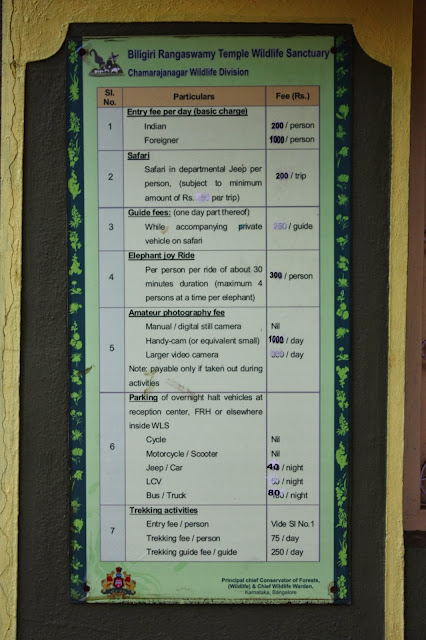 Biligiri Rangaswamy Temple Wildlife Sanctuary
Chamarajanagar Wildlife Division
Sl. No. Particulars Fee (Rs.)
1 Entry fee per day (basic charge)
Indian 200 / person
Foreigner 1000 / person
2 Safari
Safari in departmental Jeep per
person, (subject to minimum 200 / trip
amount of Rs. per trip)
3 Guide fees: (one day part thereof)
While accompanying private / guide
vehicle on safari
4 Elephant joy Ride
Per person per ride of about 30 300 / person
minutes duration (maximum 4
persons at a time per elephant)
5 Amateur photography fee
Manual / digital still camera Nil
Handy-cam (or equivalent small) 1000 / day
Larger video camera / day
Note: payable only if taken out during
activities
6 Parking of overnight halt vehicles at
reception center, FRH or elsewhere
inside WLS
Cycle Nil
Motorcycle / Scooter Nil
Jeep / Car 40 / night
LCV / night
Bus / Truck 80 / night
7 Trekking activities
Entry fee / person Vide Sl No.1
Trekking fee / person 75 / day
Trekking guide fee / guide 250 / day
Principal chief Conservator of Forests,
(Wildlife) & Chief Wildlife Warden,
Karnataka, Bangalore